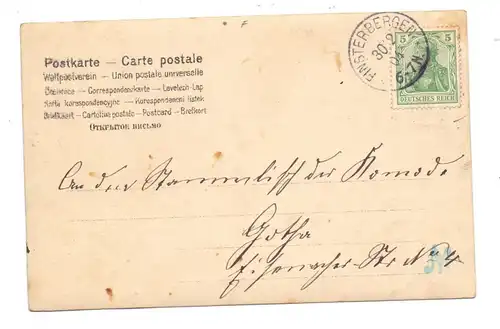 Postkarte — Carte postale
Weltpostverein — Union postale universelle
Correspondenzkarte — Levelező-Lap
Karta korespondencyjna — Korespondenční lístek
Briefkaart — Cartolina postale — Postcard — Brefkort
Открытое письмо
FINSTERBERGEN
30.9
6-7N.
5 5
DEUTSCHES REICH
An den Stammtisch der Komode
Gotha
Eisenacher Str No 4